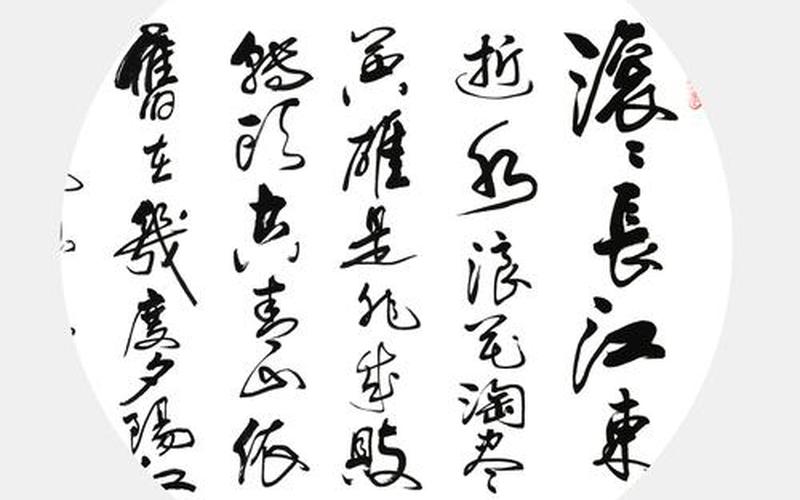 滾〻長江東
逝水浪花淘盡
英雄是非成敗
轉頭空青山依
舊在幾度夕陽